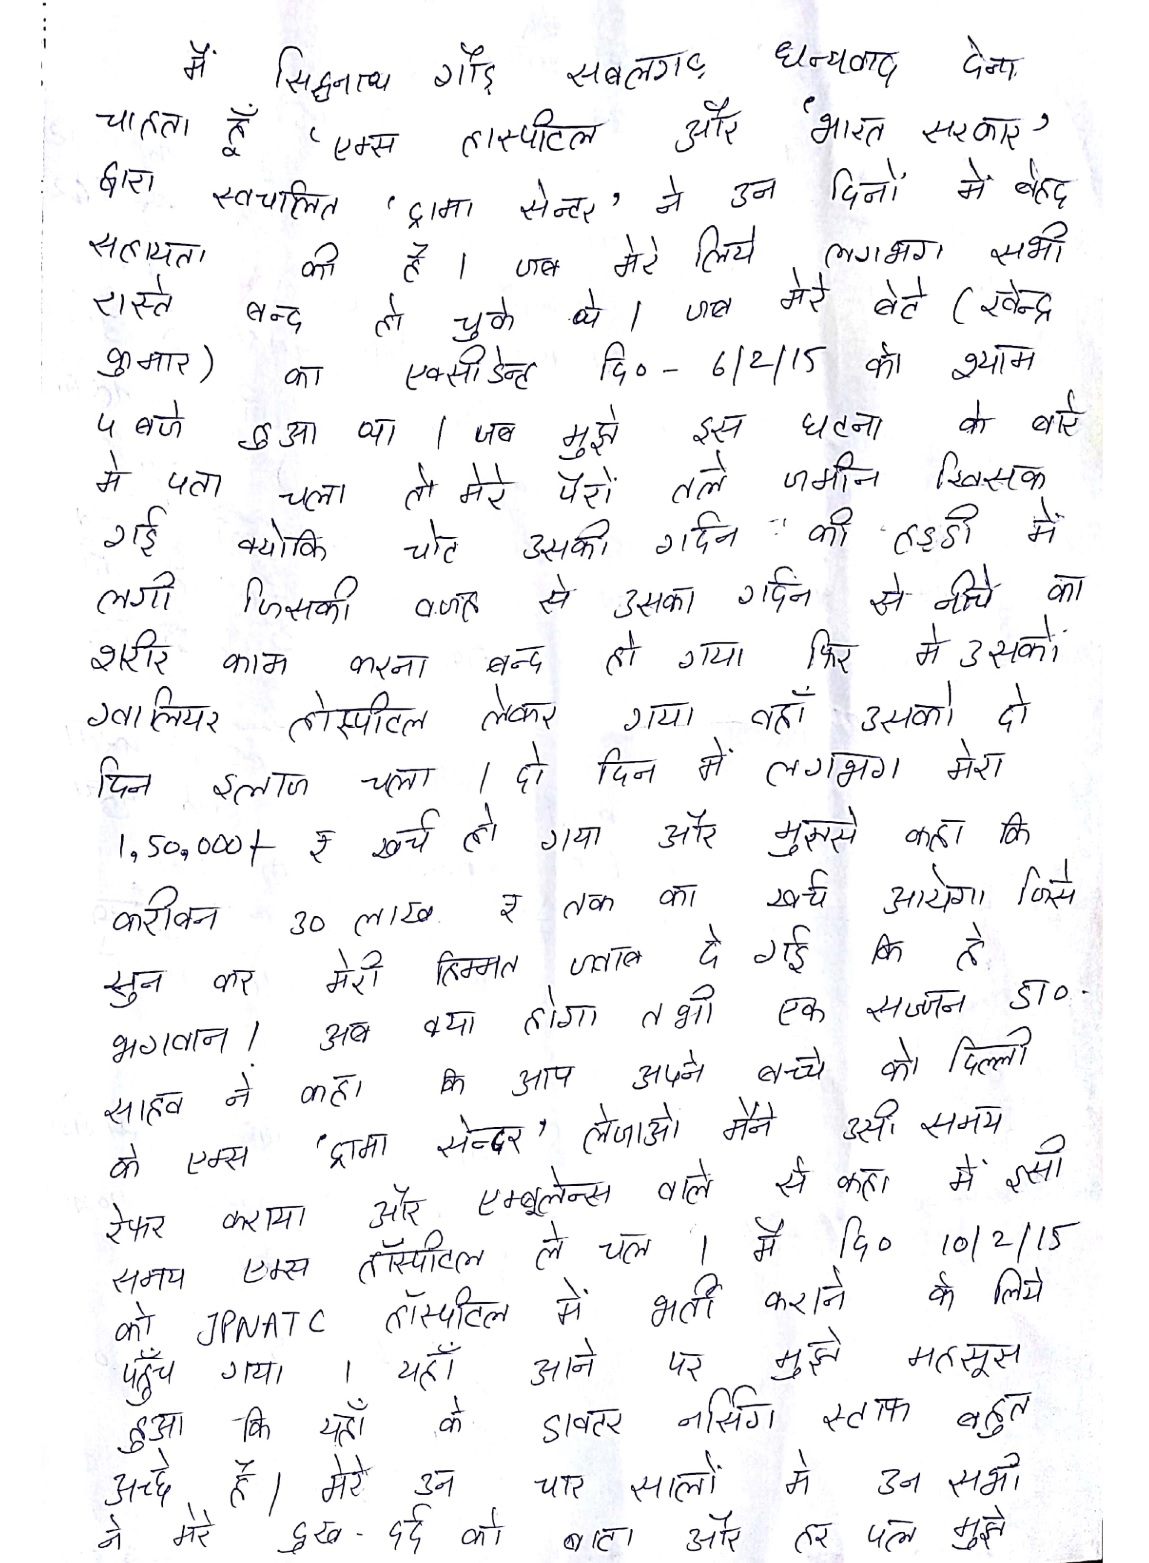 मैं सिद्धनाथ गौड़ सबलगढ़ धन्यवाद देना
चाहता हूँ 'एम्स हास्पीटल और 'भारत सरकार'
द्वारा स्वचालित 'ट्रामा सेन्टर' ने उन दिनों में बेहद
सहायता की है । जब मेरे लिये लगभग सभी
रास्ते बन्द हो चुके थे । जब मेरे बेटे (रवेन्द्र
कुमार) का एक्सीडेन्ट दि० - 6/2/15 को श्याम
५ बजे हुआ था । जब मुझे इस घटना के बारे
मे पता चला तो मेरे पैरों तले जमीन खिसक
गई क्योकि चोट उसकी गर्दन की हड्डी में
लगी जिसकी वजह से उसका गर्दन से नीचे का
शरीर काम करना बन्द हो गया फिर मे उसकों
ग्वालियर होस्पीटल लेकर गया वहाँ उसको दो
दिन इलाज चला । दो दिन में लगभग मेरा
1,50,000/- रु खर्च हो गया और मुझसे कहा कि
करीबन 30 लाख रु तक का खर्च आयेगा जिसे
सुन कर मेरी हिम्मत जवाब दे गई कि हे
भगवान । अब क्या होगा तभी एक सज्जन डा०
साहब ने कहा कि आप अपने बच्चे को दिल्ली
के एम्स 'ट्रामा सेन्टर' लेजाओ मैंने उसी समय
रेफर कराया और एम्बूलेन्स वाले से कहा में इसी
समय एम्स हॉस्पीटल ले चल । मैं दि० 10/2/15
को JPNATC हॉस्पीटल में भर्ती कराने के लिये
पहुँच गया । यहाँ आने पर मुझे महसूस
हुआ कि यहाँ के डाक्टर नर्सिंग स्टाफ बहुत
अच्छे हैं । मेरे उन चार सालों मे उन सभी
ने मेरे दुख-दर्द को बाटा और हर पल मुझे